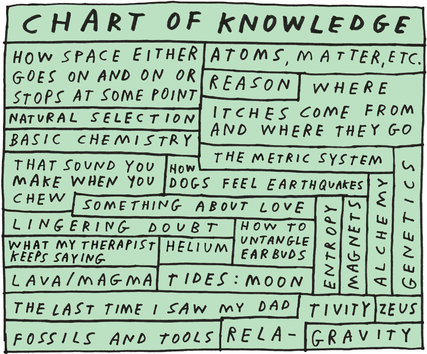 CHART OF KNOWLEDGE
HOW SPACE EITHER
GOES ON AND ON OR
STOPS AT SOME POINT
ATOMS, MATTER, ETC.
REASON
WHERE
ITCHES COME FROM
AND WHERE THEY GO
NATURAL SELECTION
BASIC CHEMISTRY
THE METRIC SYSTEM
THAT SOUND YOU
MAKE WHEN YOU
CHEW
HOW
DOGS FEEL EARTHQUAKES
SOMETHING ABOUT LOVE
LINGERING DOUBT
WHAT MY THERAPIST
KEEPS SAYING
HELIUM
HOW TO
UNTANGLE
EARBUDS
ENTROPY
MAGNETS
ALCHEMY
GENETICS
LAVA/MAGMA
TIDES: MOON
THE LAST TIME I SAW MY DAD
TIVITY
ZEUS
FOSSILS AND TOOLS
RELA-
GRAVITY